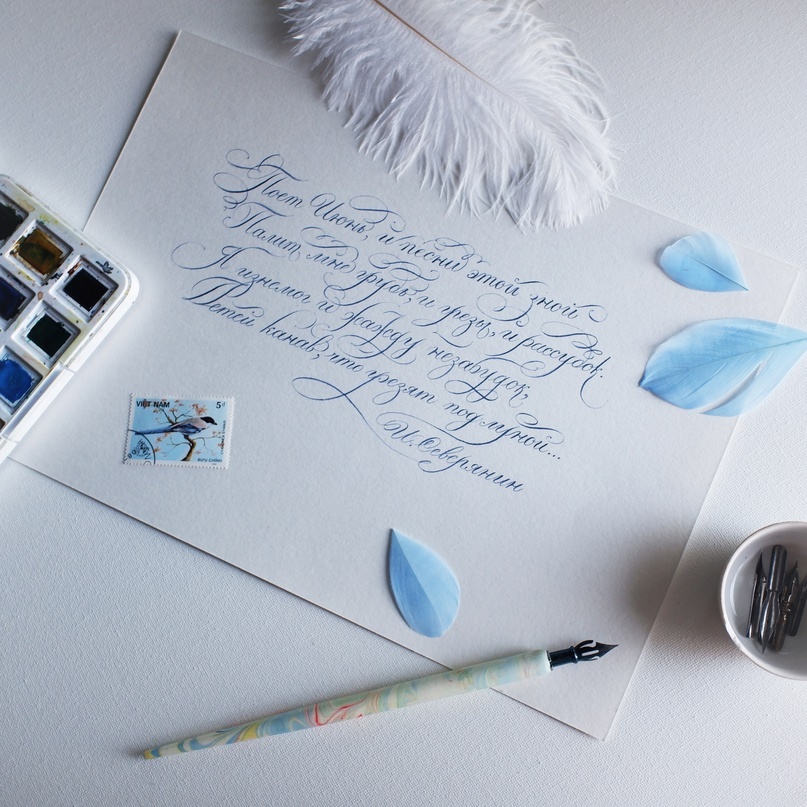 Поет Июнь, и песни этой зной
Палит мне грудь, и грезы, и рассудок.
Я изнемог и жажду незабудок,
Детей канав, что грезят под луной...
И. Северянин
VIỆT NAM 5đ
BƯU CHÍNH